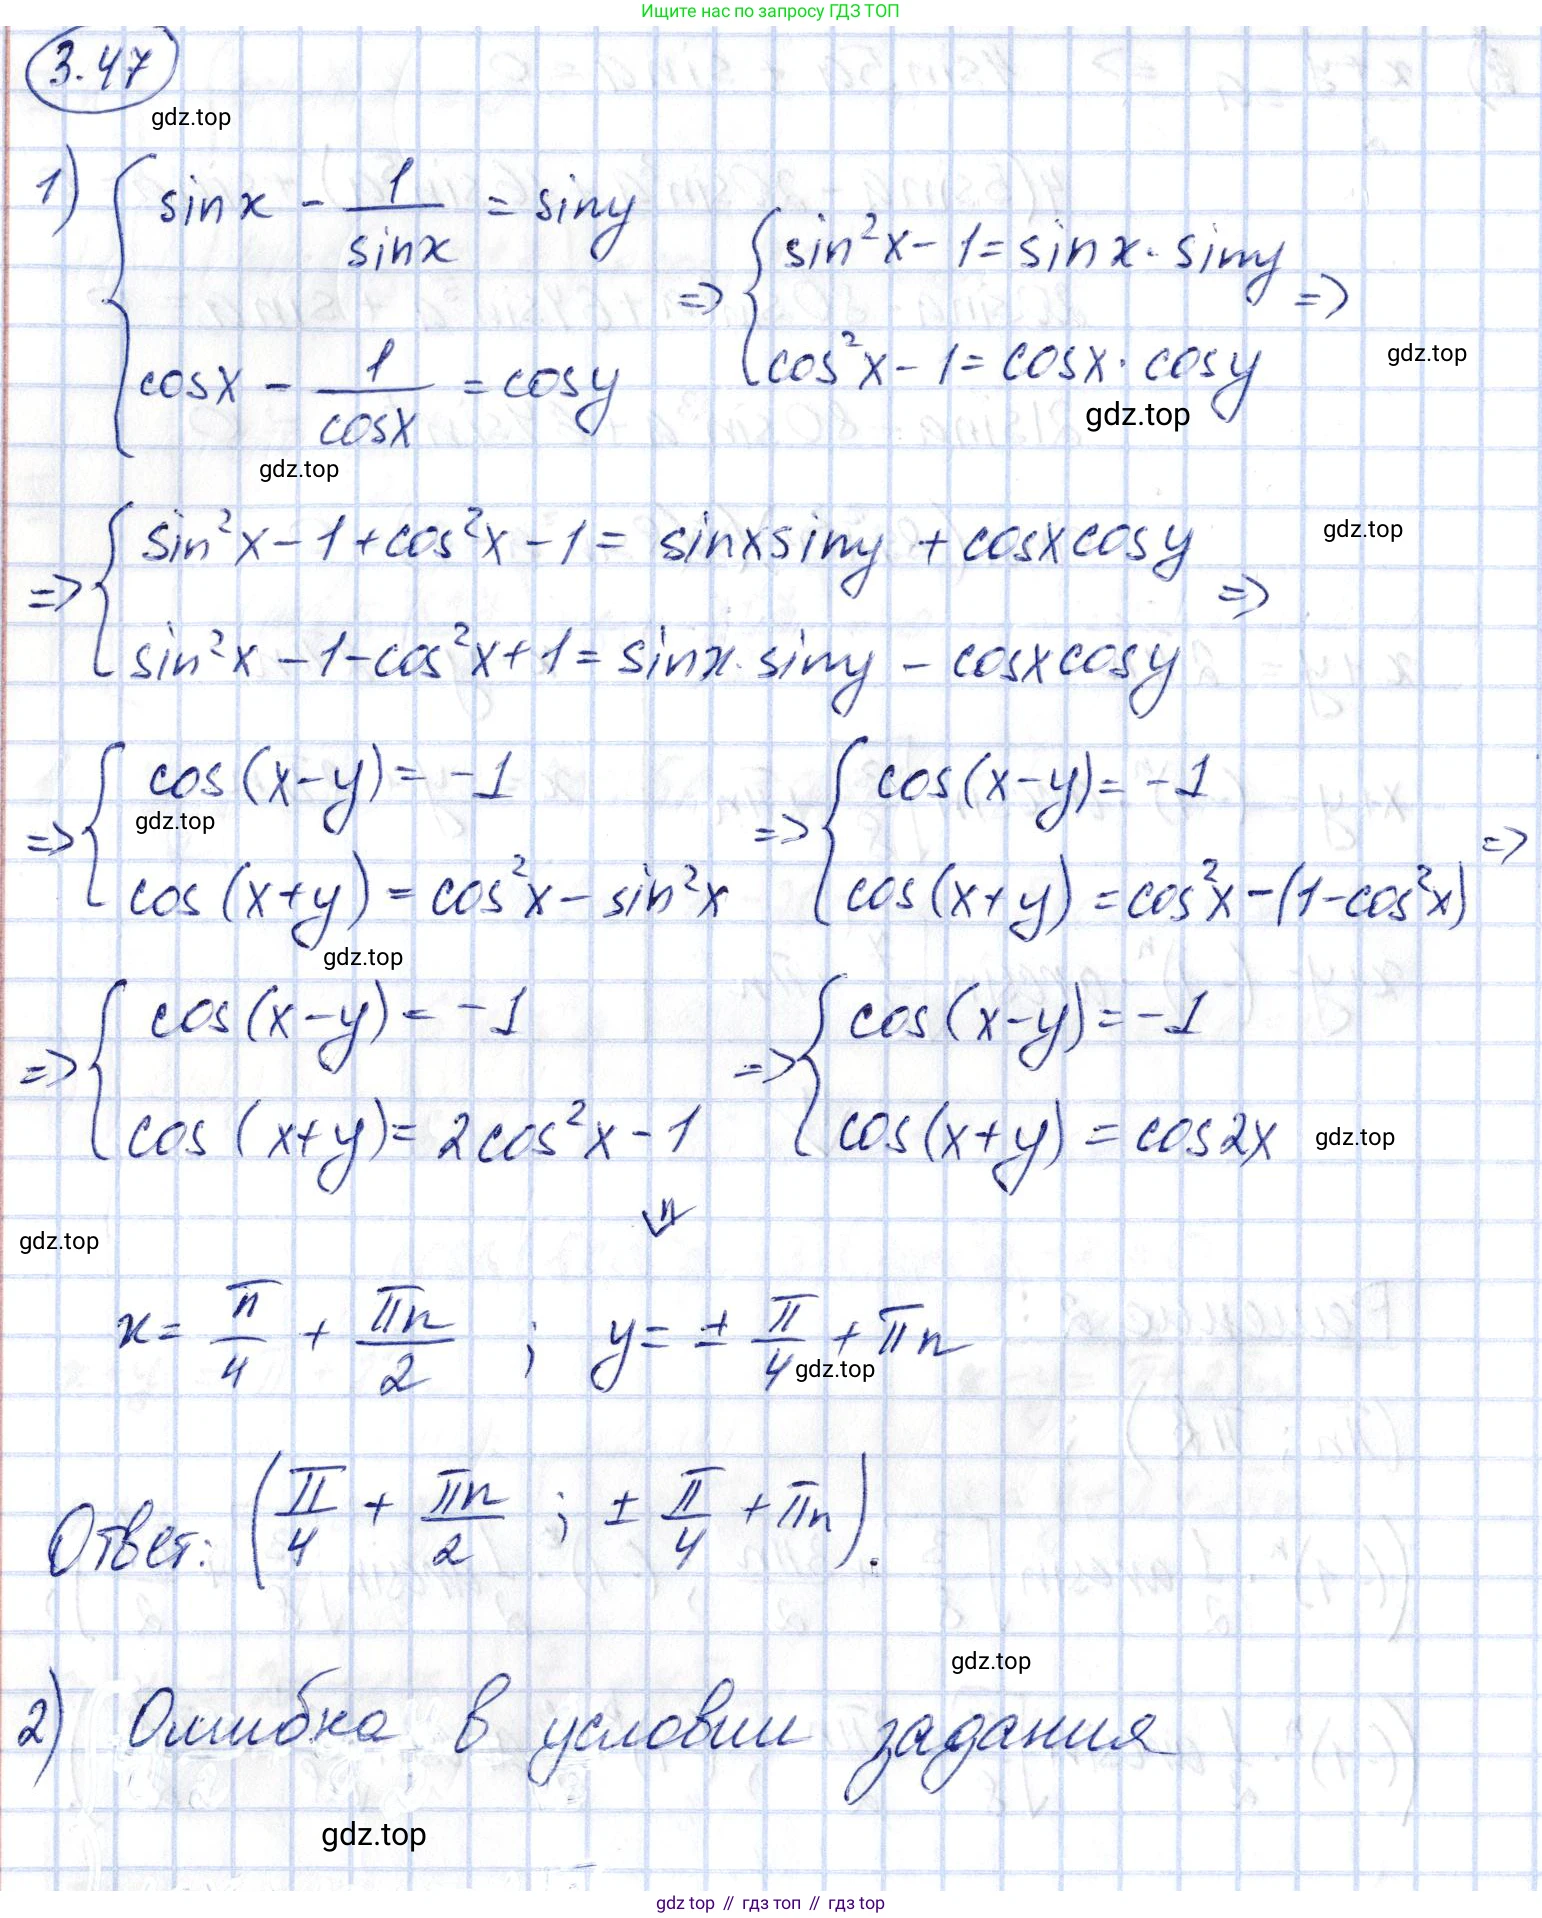 Ищите нас по запросу ГДЗ ТОП
3.47
gdz.top
1) { sinx - 1/sinx = siny ; cosx - 1/cosx = cosy => { sin²x - 1 = sinx · siny ; cos²x - 1 = cosx · cosy =>
gdz.top
gdz.top
gdz.top
=> { sin²x - 1 + cos²x - 1 = sinxsiny + cosxcosy ; sin²x - 1 - cos²x + 1 = sinx · siny - cosxcosy =>
gdz.top
=> { cos(x-y) = -1 ; cos(x+y) = cos²x - sin²x => { cos(x-y) = -1 ; cos(x+y) = cos²x - (1 - cos²x) =>
gdz.top
gdz.top
=> { cos(x-y) = -1 ; cos(x+y) = 2cos²x - 1 => { cos(x-y) = -1 ; cos(x+y) = cos2x
gdz.top
⇓
gdz.top
x = π/4 + πn/2 ; y = ± π/4 + πn
gdz.top
Ответ: (π/4 + πn/2 ; ± π/4 + πn).
gdz.top
2) Ошибка в условии задания
gdz.top
gdz top // гдз топ // гдз top